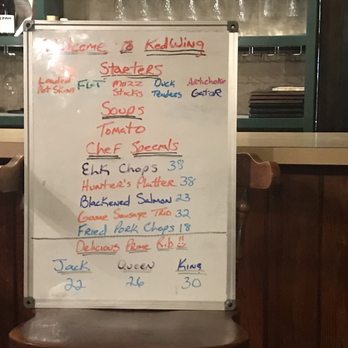 Welcome To RedWing
Starters
Loaded FGT Mozz Duck Artichoke
Pot Skins Sticks Tenders Gator
Soups
Tomato
Chef Specials
Elk Chops 38
Hunter's Platter 38
Blackened Salmon 23
Game Sausage Trio 32
Fried Pork Chops 18
Delicious Prime Rib!!
Jack Queen King
22 26 30